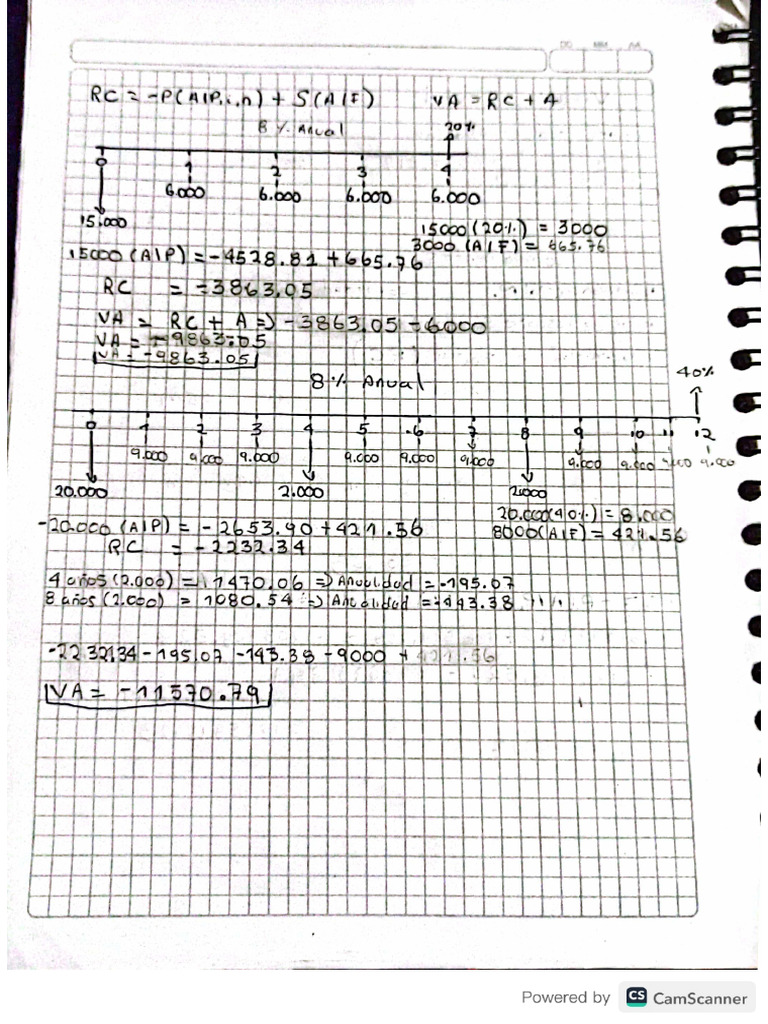 DD MM AA
RC = -P(A|P,i,n) + S(A|F) VA = RC + A
8 % Anual 20%
0 1 2 3 4
6.000 6.000 6.000 6.000
15.000
15000 (20%) = 3000
3000 (A|F) = 665.76
15000 (A|P) = -4528.81 + 665.76
RC = -3863.05
VA = RC + A => -3863.05 - 6000
VA = -9863.05
VA = -9863.05
8 % Anual 40%
0 1 2 3 4 5 6 7 8 9 10 11 12
9.000 9.000 9.000 9.000 9.000 9.000 9.000 9.000 9.000
20.000 2.000 2.000
20.000(40%) = 8.000
-20.000 (A|P) = -2653.90 + 421.56 8000(A|F) = 421.56
RC = -2232.34
4 años (2.000) = 1470.06 => Anualidad = -195.07
8 años (2.000) = 1080.54 => Anualidad = -143.38
-2232.34 - 195.07 - 143.38 - 9000 + 421.56
VA = -11570.79
Powered by CS CamScanner